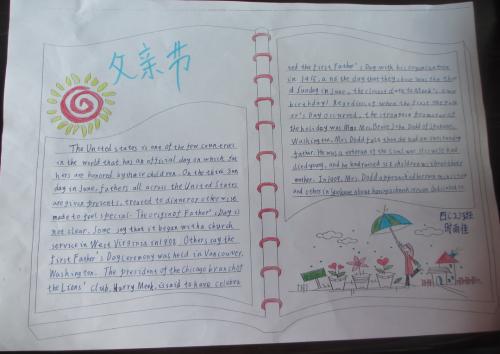 父亲节
The United states is one of the few countries
in the world that has an official day on which fat
hers are honored by their children. On the third Sun
day in June, fathers all across the United States
are given presents, treated to dinner or otherwise
made to feel special. The origin of Father's Day is
not clear. Some say that it began with a church
service in West Virginia in 1908. Others say the
first Father's Day ceremony was held in Vancouver,
Washington. The president of the Chicago branch of
the Lions' Club, Harry Meek, is said to have celebra
ted the first Father's Day with his organization
in 1915, and the day that they chose was the thir
d Sunday in June, the closest date to Meek's own
birthday! Regardless of when the first the Fat
er's Day occurred, the strongest promoter of
the holiday was Mrs. Bruce John Dodd of Spokane,
Washington. Mrs. Dodd felt that she had an outstanding
father. He was a veteran of the Civil War. His wife had
died young, and he had raised six children without their
mother. In 1909, Mrs. Dodd approached her own minister
and others in Spokane about having a church service dedicated to